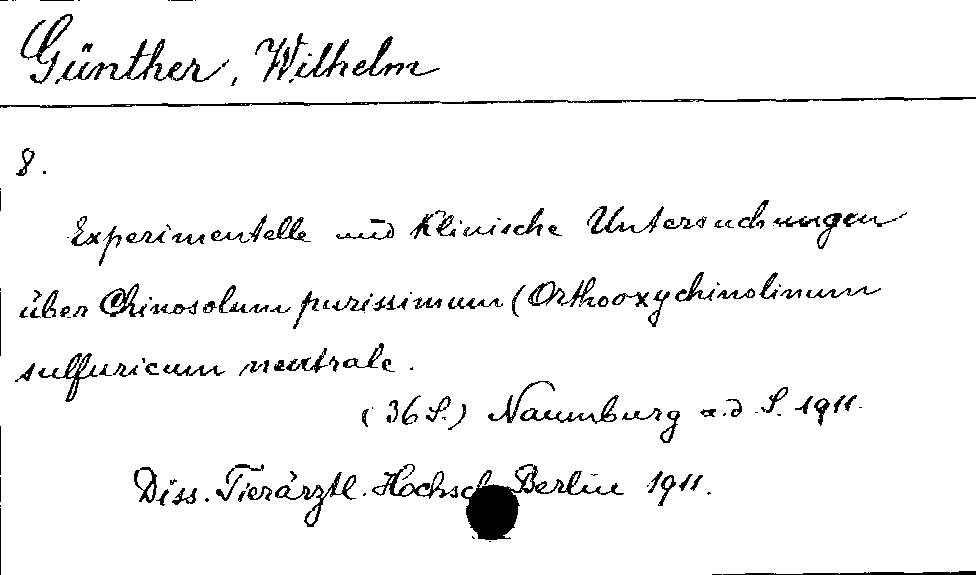 Günther, Wilhelm
8.
Experimentelle und Klinische Untersuchungen
über Chinosolum purissimum (Orthooxychinolinum
sulfuricum neutrale.
(36 S.) Naumburg a.d S. 1911.
Diss. Tierärztl. Hochsch Berlin 1911.